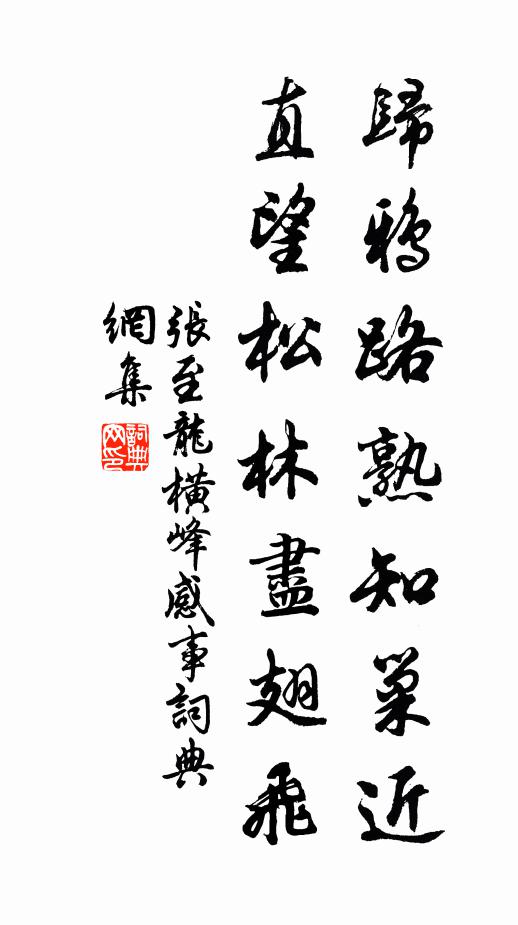 歸鴉路熟知巢近
直望松林盡翅飛
張至龍橫峰感事詞典
網集
詞典
网印